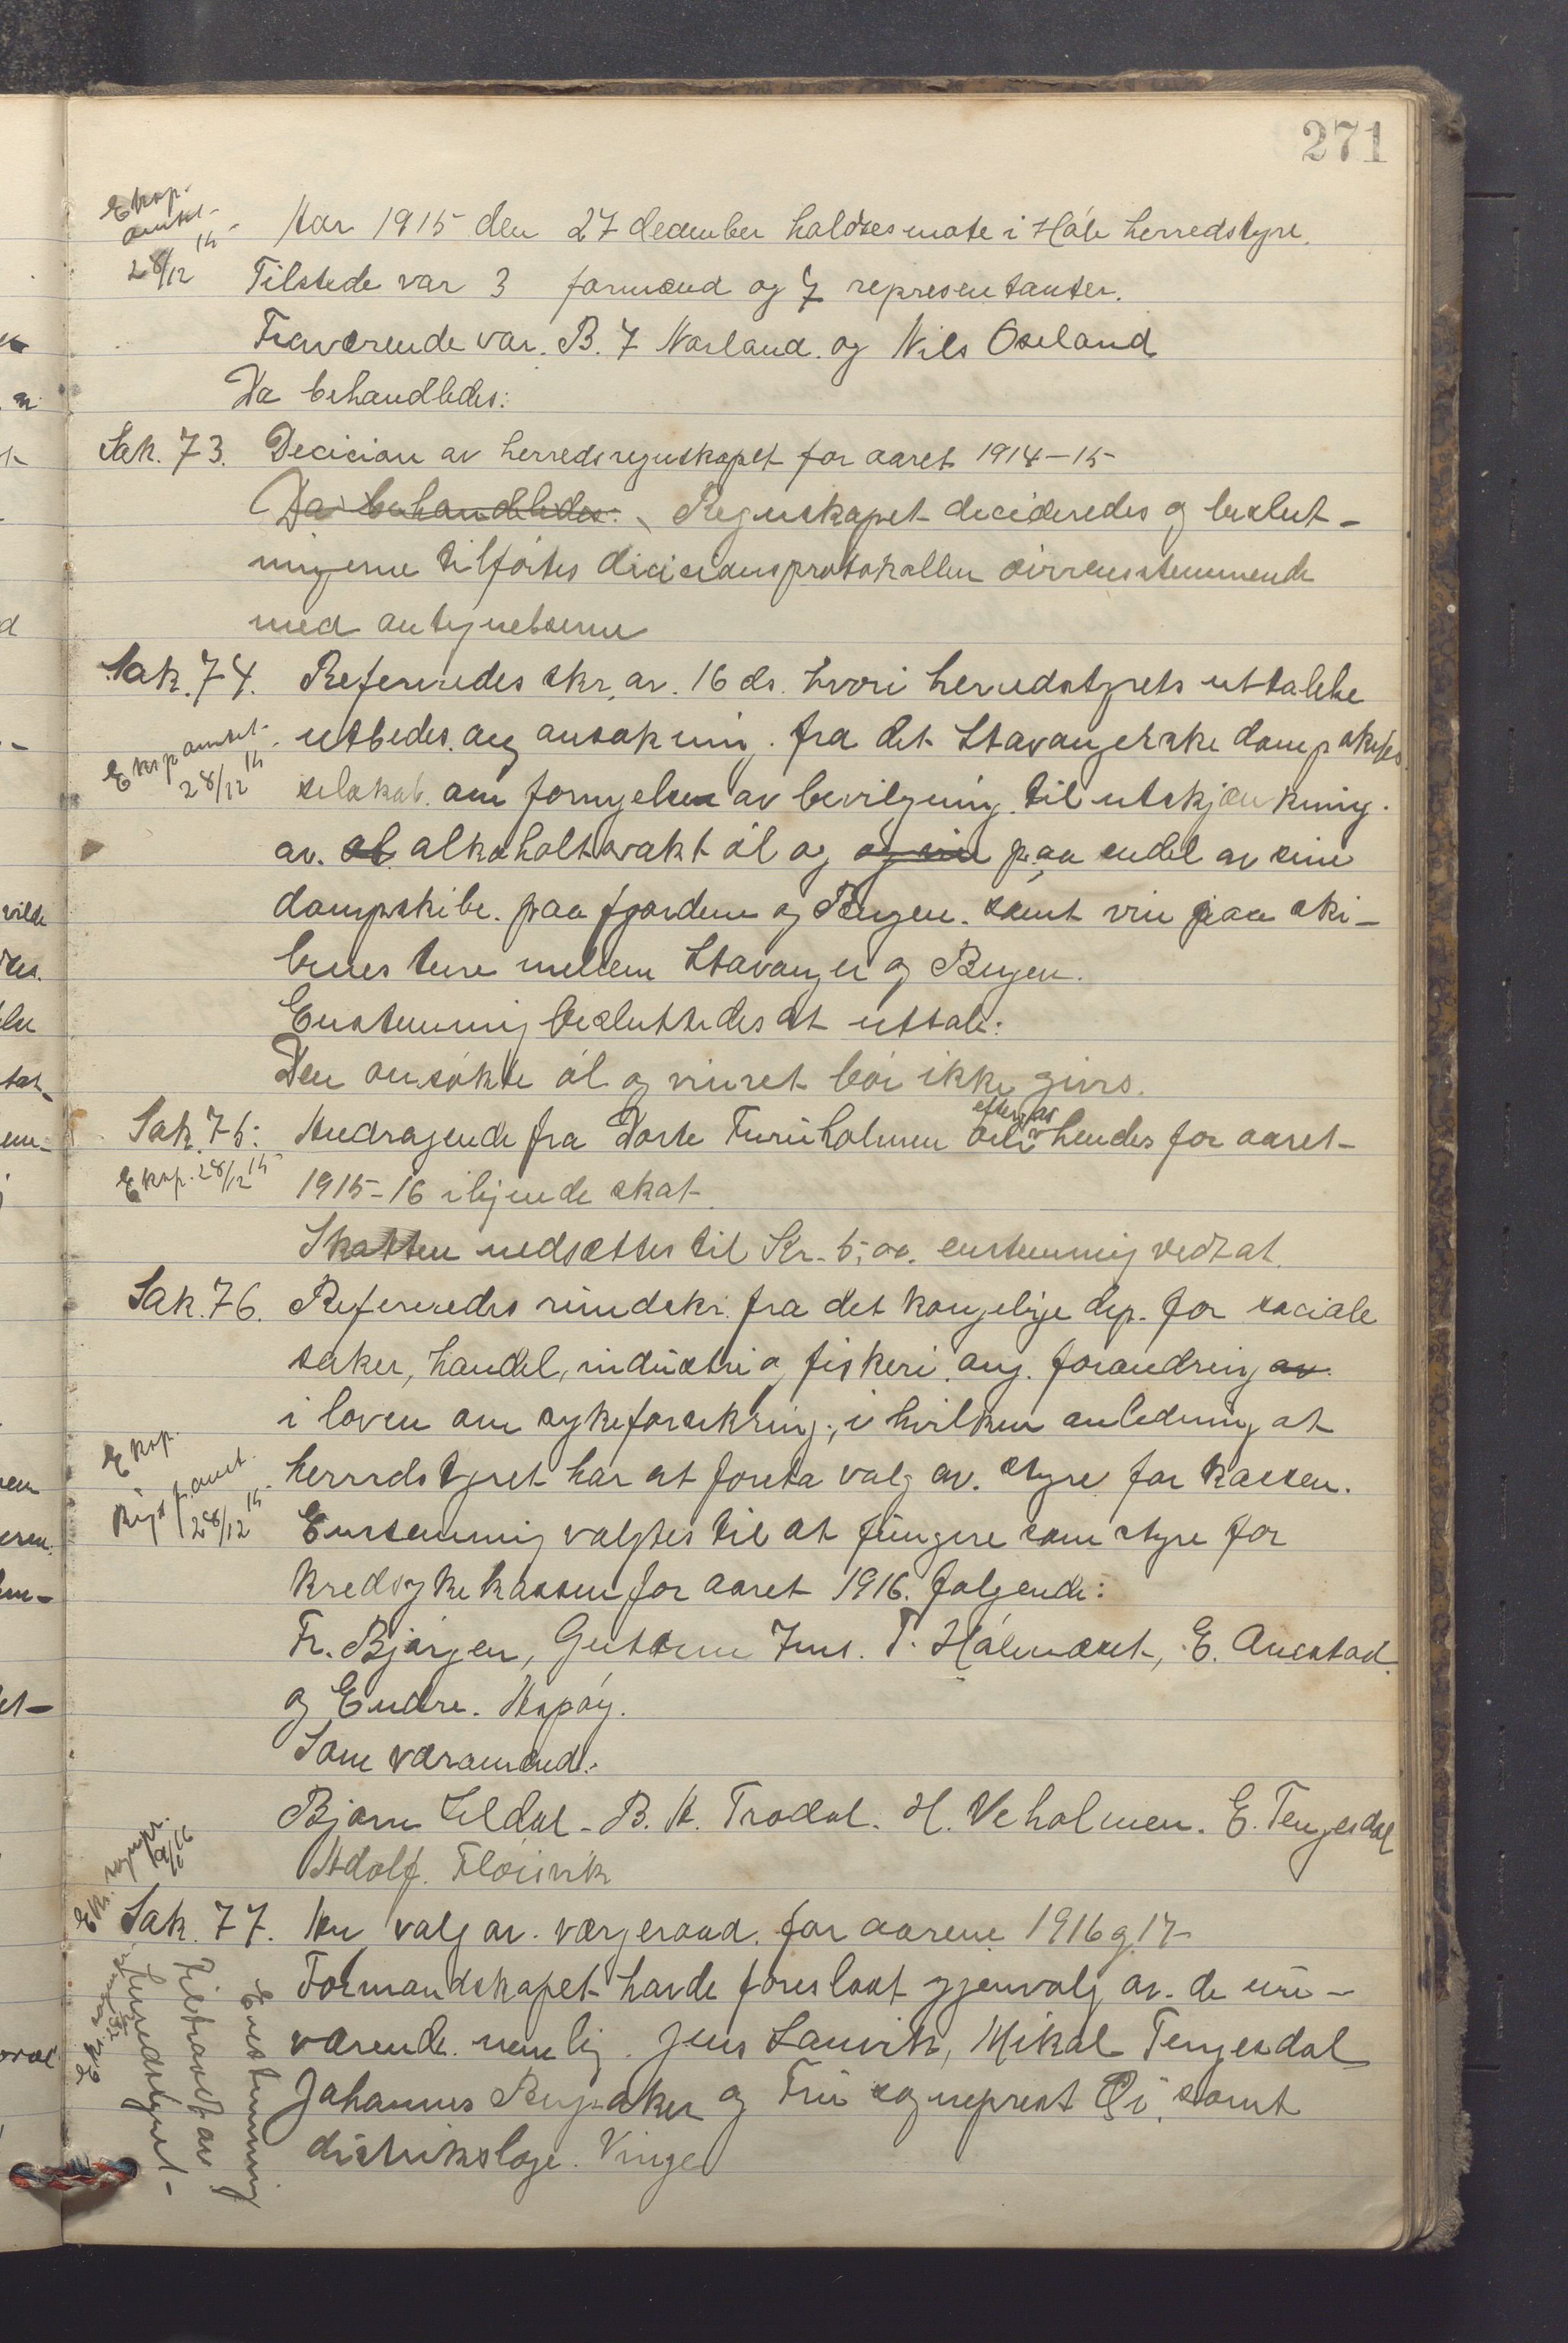 271
Eksp.
amtet
28/12 15
Aar 1915 den 27 december holdtes møte i Håle herredstyre.
Tilstede var 3 formænd og 7 representanter.
Fraværende var. B. 7 Narland. og Nils Oseland
Da behandledes:
Sak. 73. Decision av herredsregnskapet for aaret 1914-15
Da behandledes: Regnskapet decideredes og beslut-
ningerne tilførtes decisionsprotokollen overensstemmende
med antegnelserne
Sak. 74. Refereredes skr. av. 16 ds. hvori herredstyrets uttalelse
Eksp amtet
28/12 15
utbedes. ang ansøkning. fra det Stavangerske dampskibs
selskab. om fornyelse av bevilgning. til utskjænkning.
av. øl alkoholsvakt øl og og vin paa endel av sine
dampskibe. paa fjordene og Bergen. samt vin paa ski-
benes ture mellem Stavanger og Bergen.
Enstemmig besluttedes at uttale:
Den ansøkte øl og vinret bør ikke gives.
Sak. 75: Andragende fra Dorte Furuholmen om eftergivelse hendes for aaret
Eksp. 28/12 15
1915-16 ilignede skat.
Skatten nedsættes til Kr. 5,00. enstemmig vedtat.
Sak. 76. Refereredes rundskr. fra det kongelige dep. for sociale
saker, handel, industri og fiskeri ang. forandring av
i loven om sykeforsikring, i hvilken anledning at
Eksp.
Rigsf. anst.
28/12 15
herredstyret har at foreta valg av. styre for kassen.
Enstemmig valgtes til at fungere som styre for
kredssykekassen for aaret 1916. følgende:
Fr. Bjørgen, Guttorm Ims. T. Hålandset, E. Anestad.
og Endre. Aspøy.
Som varamænd:
Bjørn Lildal. B. A. Trodal. H. Veholmen. E. Tengesdal
Adolf. Fløisvik
Sak. 77. Nu valg av. værgeraad. for aarene 1916 og 17
Formandskapet havde foreslaat gjenvalg av. de nu-
værende. nemlig. Jens Lauvik, Mikal Tengesdal
Johannes Bergaker og Fru sogneprest Qi. samt
distrikslæge. Vinge
Enstemmig
tiltraadt av
herredstyret-